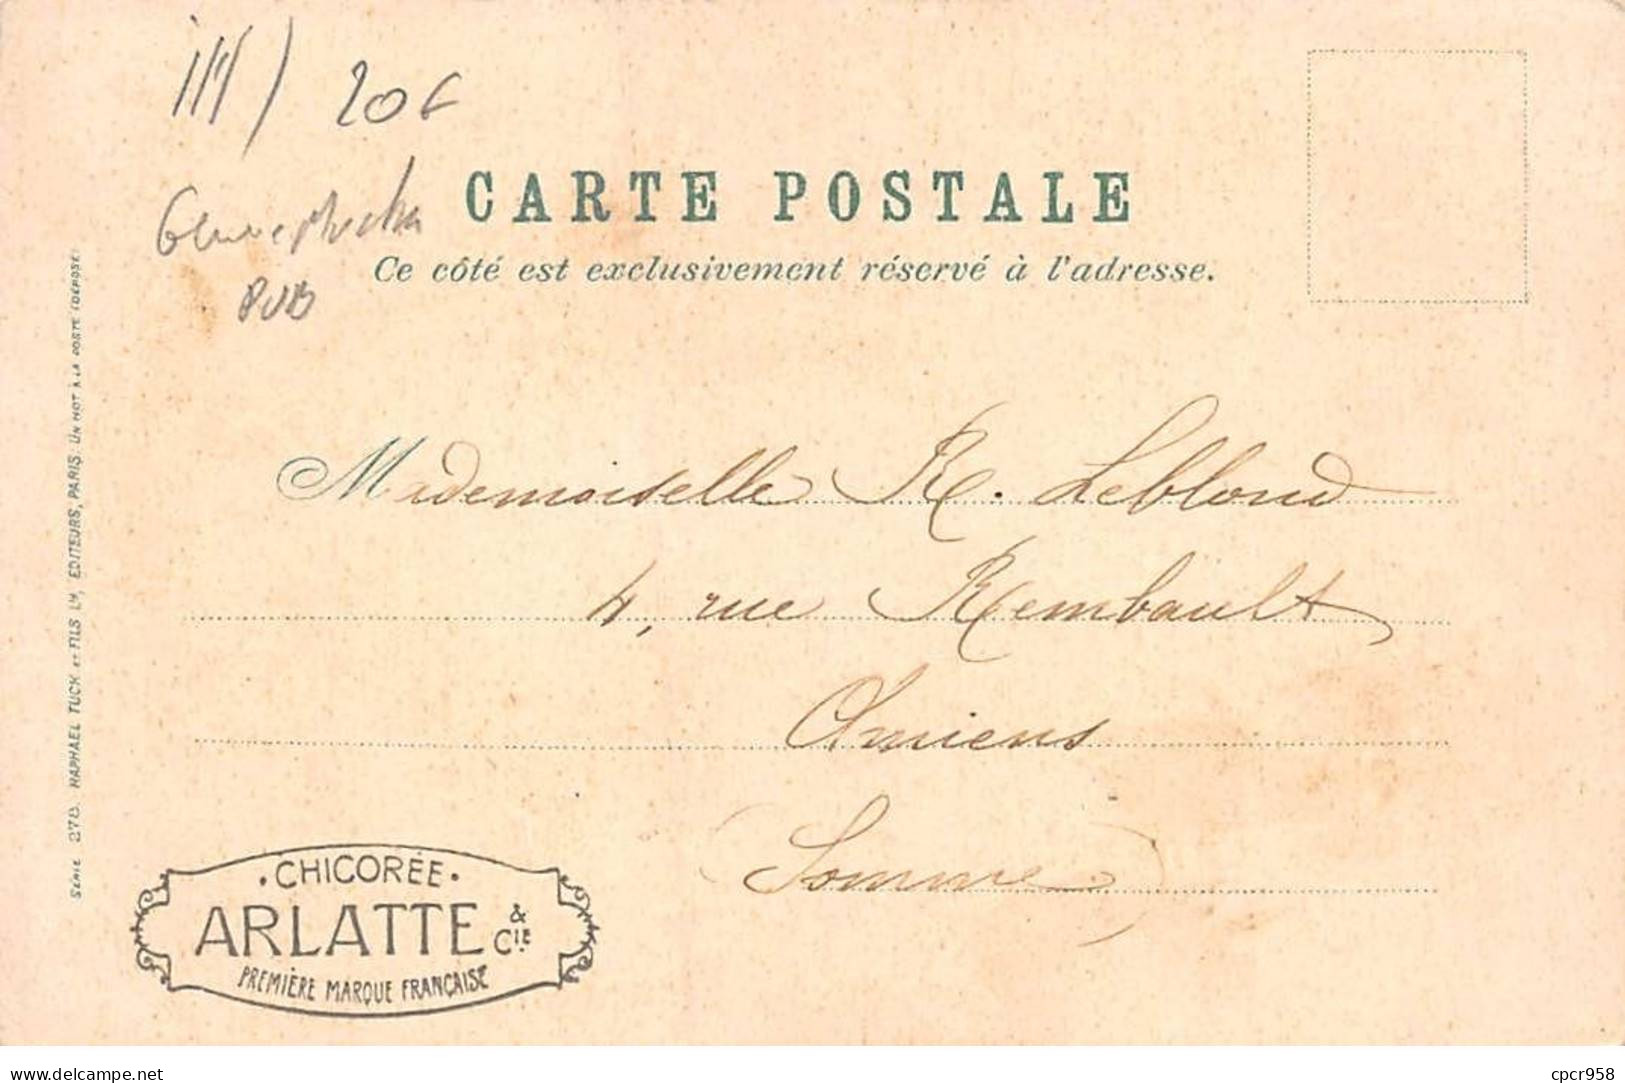 20€
PUB
CARTE POSTALE
Ce côté est exclusivement réservé à l'adresse.
Mademoiselle R. Leblond
4, rue Rembault
Amiens
(Somme)
SÉRIE 278. RAPHAEL TUCK ET FILS LD, EDITEURS, PARIS. UN MOT À LA POSTE (DÉPOSÉ)
· CHICORÉE ·
ARLATTE & CIE
PREMIÈRE MARQUE FRANÇAISE
www.delcampe.net
cpcr958